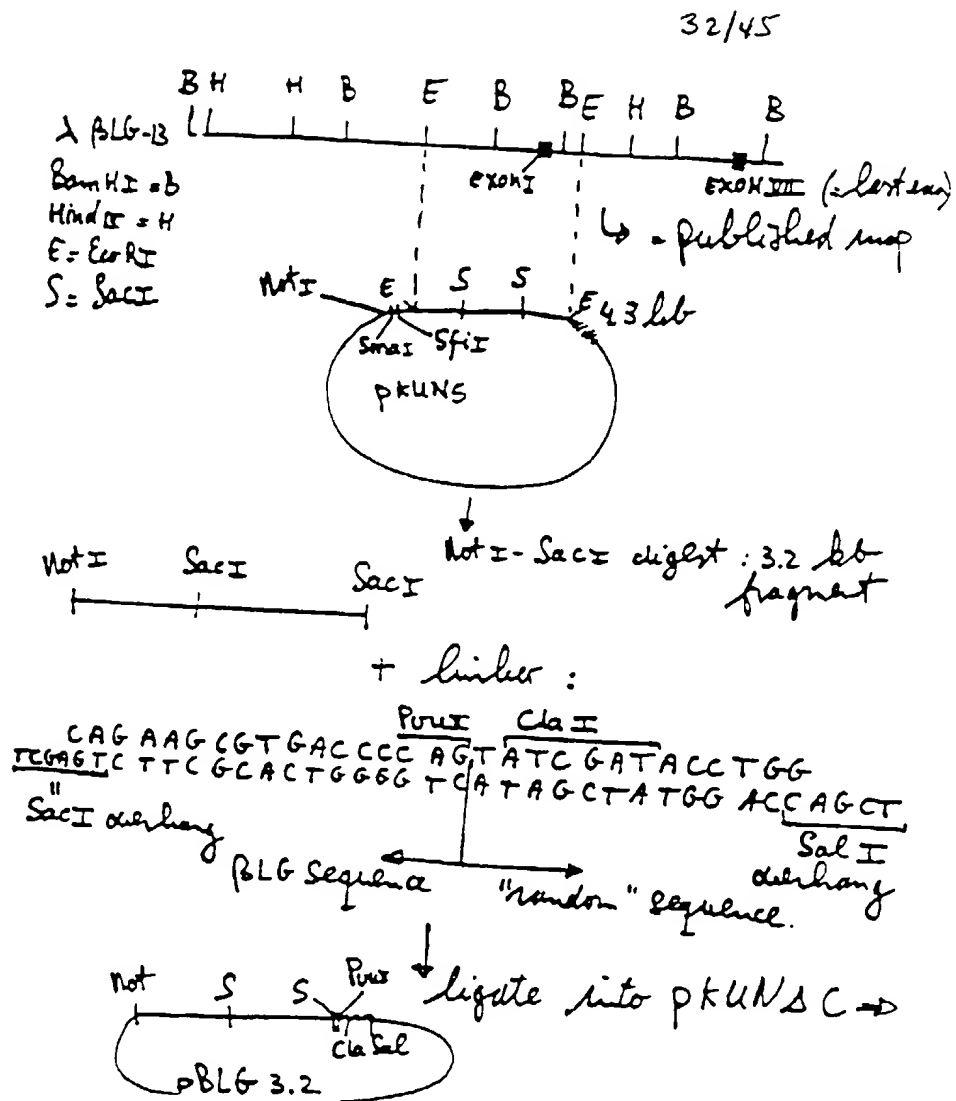 32/45
B H H B E B B E H B B
λ βLG-13
BamHI = B
Hind III = H
E = EcoRI
S = SacI
exon I
EXON VII (= last exon)
↳ = published map
NotI E S S E 4.3 kb
SmaI SfiI
pKUNS
NotI - SacI digest : 3.2 kb
fragment
NotI SacI SacI
+ linker :
PvuI ClaI
CAG AAG CGT GACCCC CAGT ATC GATACC TGG
TCGAGTC TTC GCACTGGGG TCATAGCTATGG ACCAGCT
"
SacI overhang
Sal I
overhang
βLG Sequence
"random" sequence.
Not S S PvuI
ligate into pKUNΔC ⇒
Cla Sal
pBLG 3.2